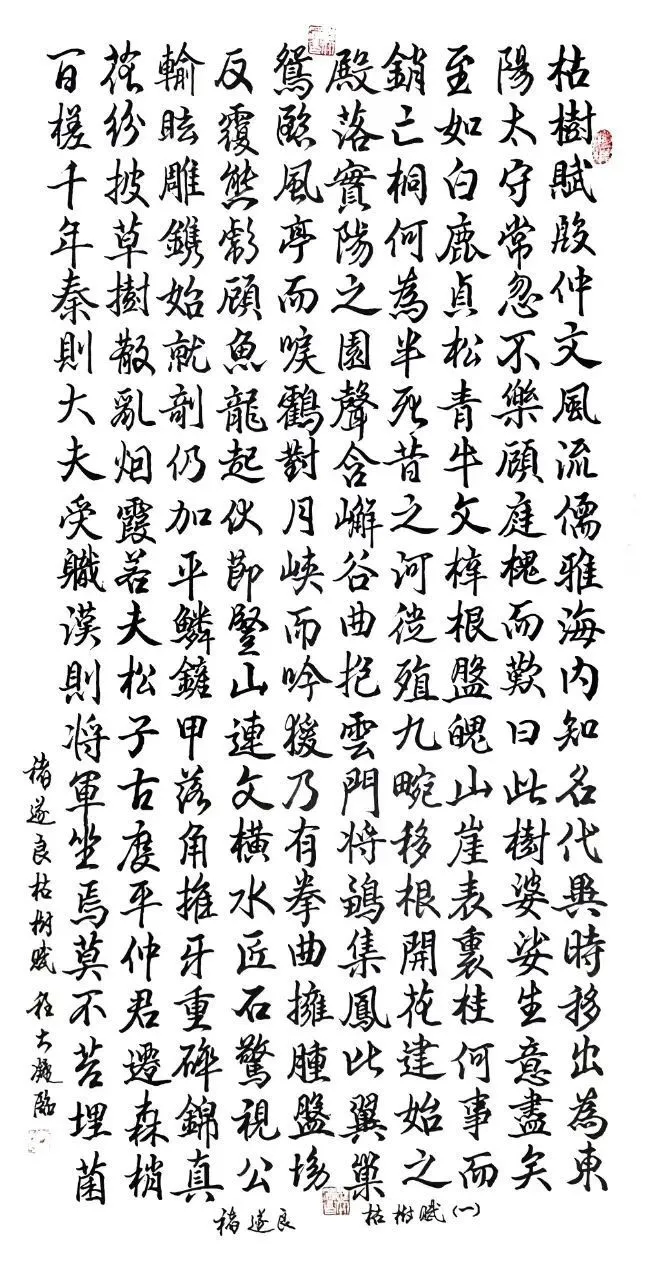 枯樹賦殷仲文風流儒雅海内知名代異時移出為東
陽太守常忽不樂顧庭槐而歎曰此樹婆娑生意盡矣
至如白鹿貞松青牛文梓根盤魄山崖表裏桂何事而
銷亡桐何為半死昔之河徙殖九畹移根開花建始之
殿落實陽之園聲含嶰谷曲抱雲門将鶵集鳳比翼巢
鴛臨風亭而唳鶴對月峽而吟猨乃有拳曲擁腫盤坳
反覆熊彪顧魚龍起伏節豎山連文橫水匠石驚視公
輸眩雕鐫始就剞仍加平鱗鏟甲落角摧牙重碎錦真
花紛披草樹散亂烟霞若夫松子古度平仲君遷森梢
百槎千年秦則大夫受職漢則将軍坐焉莫不苔埋菌
褚遂良枯树赋 程大 臨
褚遂良 枯树赋(一)